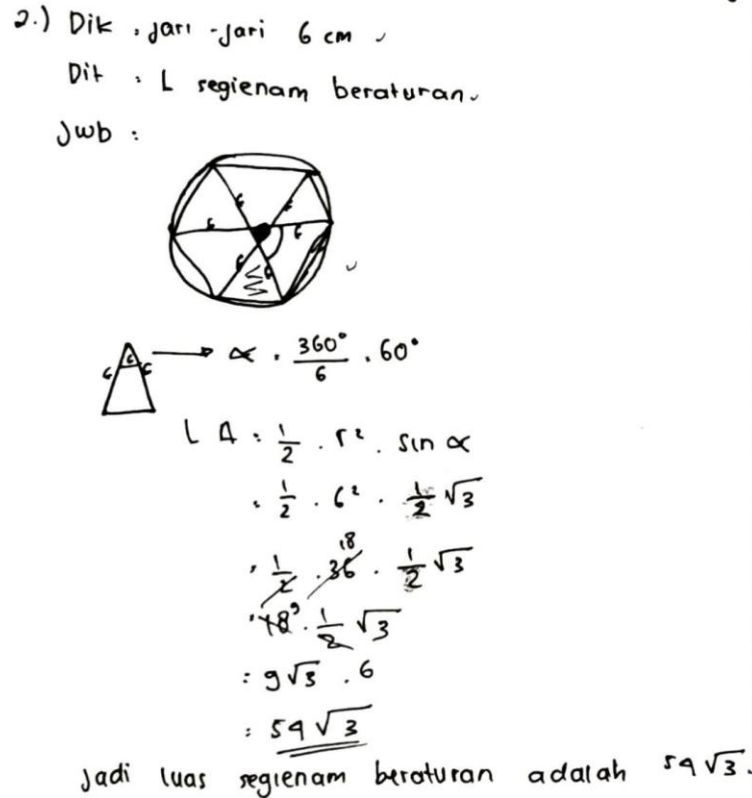 2.) Dik : jari-jari 6 cm
Dit : L segienam beraturan.
Jwb :
6 6 6 6 6 6
6 6 6 → α = 360°/6 = 60°
L Δ = 1/2 . r² . sin α
= 1/2 . 6² . 1/2 √3
= 1/2 . 36 18 . 1/2 √3
= 18 9 . 1/2 √3
= 9√3 . 6
= 54√3
Jadi luas segienam beraturan adalah 54√3.